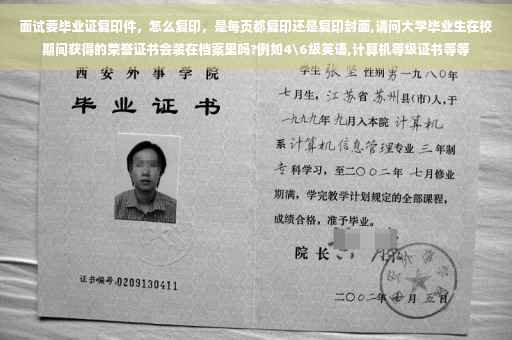 面试要毕业证复印件，怎么复印，是每页都复印还是复印封面,请问大学毕业生在校
期间获得的荣誉证书会装在档案里吗?例如4\6级英语,计算机等级证书等等
西安外事学院
毕业证书
证书编号:0209130411
学生 张坚 性别男一九八〇年
七月生，江苏省苏州县(市)人,于
一九九九年九月入本院 计算机
系计算机信息管理专业三年制
专科学习，至二〇〇二年七月修业
期满，学完教学计划规定的全部课程，
成绩合格，准予毕业。
院长
二〇〇二年 月五日